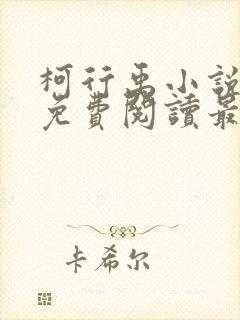 柯行禹小說
免費閱讀最
卡希尔